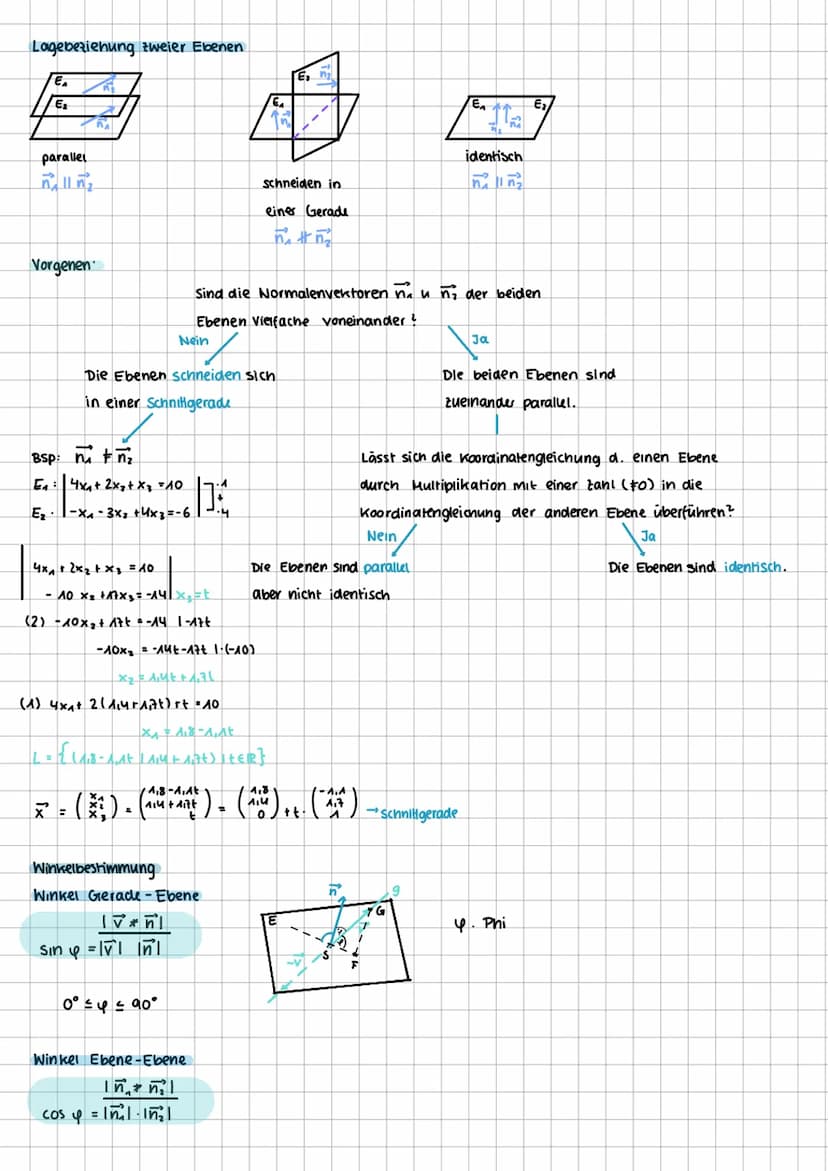 Lagebeziehung zweier Ebenen
E₁ n₂⃗
E₂ n₁⃗
parallel
n₁⃗ || n₂⃗
E₂ n₂⃗
E₁ n₁⃗
schneiden in
einer Gerade
n₁⃗ ∦ n₂⃗
E₁ E₂
n₁⃗ n₂⃗
identisch
n₁⃗ || n₂⃗
Vorgehen:
Sind die Normalenvektoren n₁⃗ u n₂⃗ der beiden
Ebenen Vielfache voneinander?
Nein
Ja
Die Ebenen schneiden sich
in einer Schnittgerade
Die beiden Ebenen sind
zueinander parallel.
Bsp: n₁⃗ ≠ n₂⃗
E₁: | 4x₁ + 2x₂ + x₃ = 10 | ·1
+
E₂: | -x₁ - 3x₂ + 4x₃ = -6 | ·4
Lässt sich die Koordinatengleichung d. einen Ebene
durch Multiplikation mit einer Zahl (≠0) in die
Koordinatengleichung der anderen Ebene überführen?
Nein
Ja
Die Ebenen sind parallel
aber nicht identisch
Die Ebenen sind identisch.
| 4x₁ + 2x₂ + x₃ = 10 |
| - 10 x₂ + 17x₃ = -14 | x₃=t
(2) -10x₂ + 17t = -14 | -17t
-10x₂ = -14t-17t | ·(-10)
x₂ = 1,4t + 1,7t
(1) 4x₁ + 2(1,4+1,7t)+t = 10
x₁ = 1,8 - 1,1t
L = {(1,8 - 1,1t | 1,4 + 1,7t) | t∈ℝ}
x⃗ = (x₁ x₂ x₃) = (1,8-1,1t 1,4+1,7t t) = (1,8 1,4 0) + t · (-1,1 1,7 1) → Schnittgerade
Winkelbestimmung
Winkel Gerade - Ebene
sin φ = |v⃗ * n⃗| / |v⃗| |n⃗|
E n⃗ g G
S F
-v⃗
φ: Phi
0° ≤ φ ≤ 90°
Winkel Ebene-Ebene
cos φ = |n₁⃗ * n₂⃗| / |n₁⃗| · |n₂⃗|